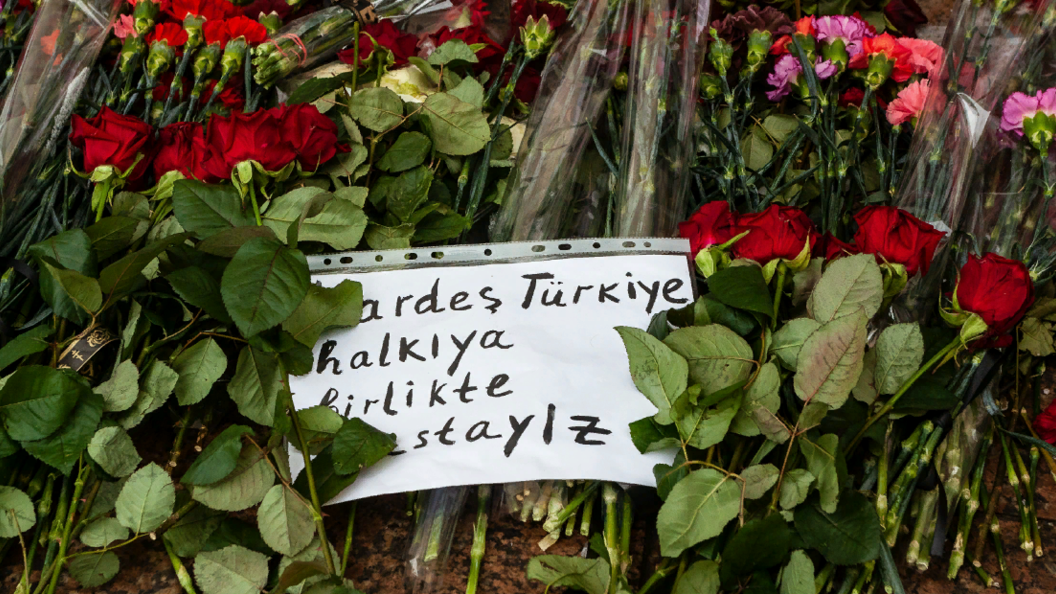 ardeş Türkiye
halkıya
birlikte
stayız